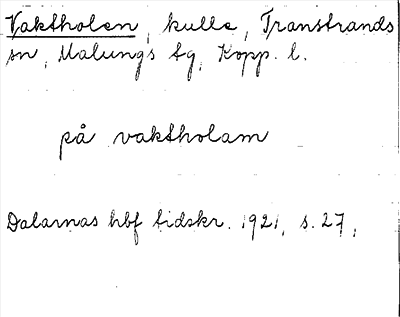 Vaktholen, kulle, Transtrands
sn, Malungs tg, Kopp. l.
på vaktholam
Dalarnas hbf tidskr. 1921, s. 27,